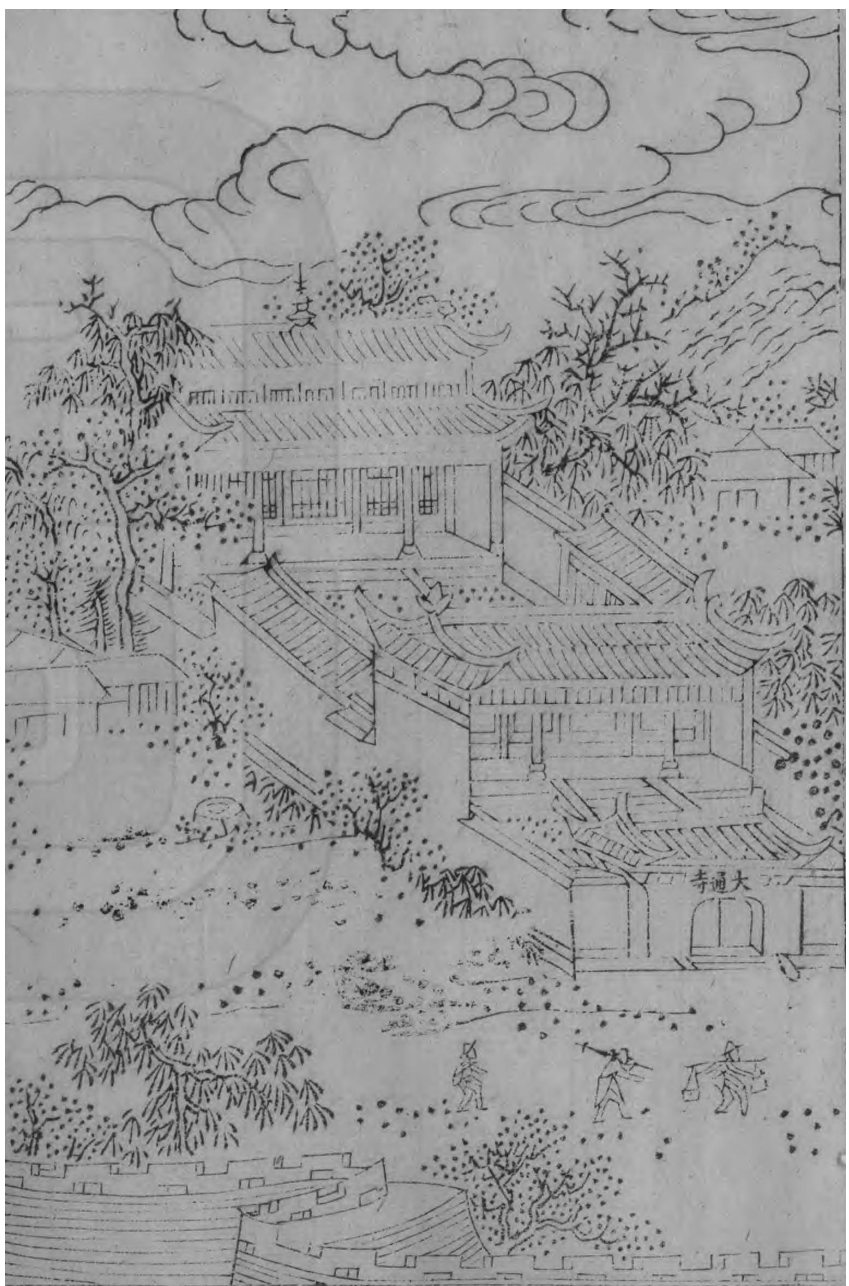 大通寺